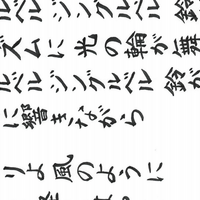 ルベル ジングルベル 鈴
ズムに光の輪が舞
ルベル ジングルベル 鈴が
に響きながら
りよ風のように